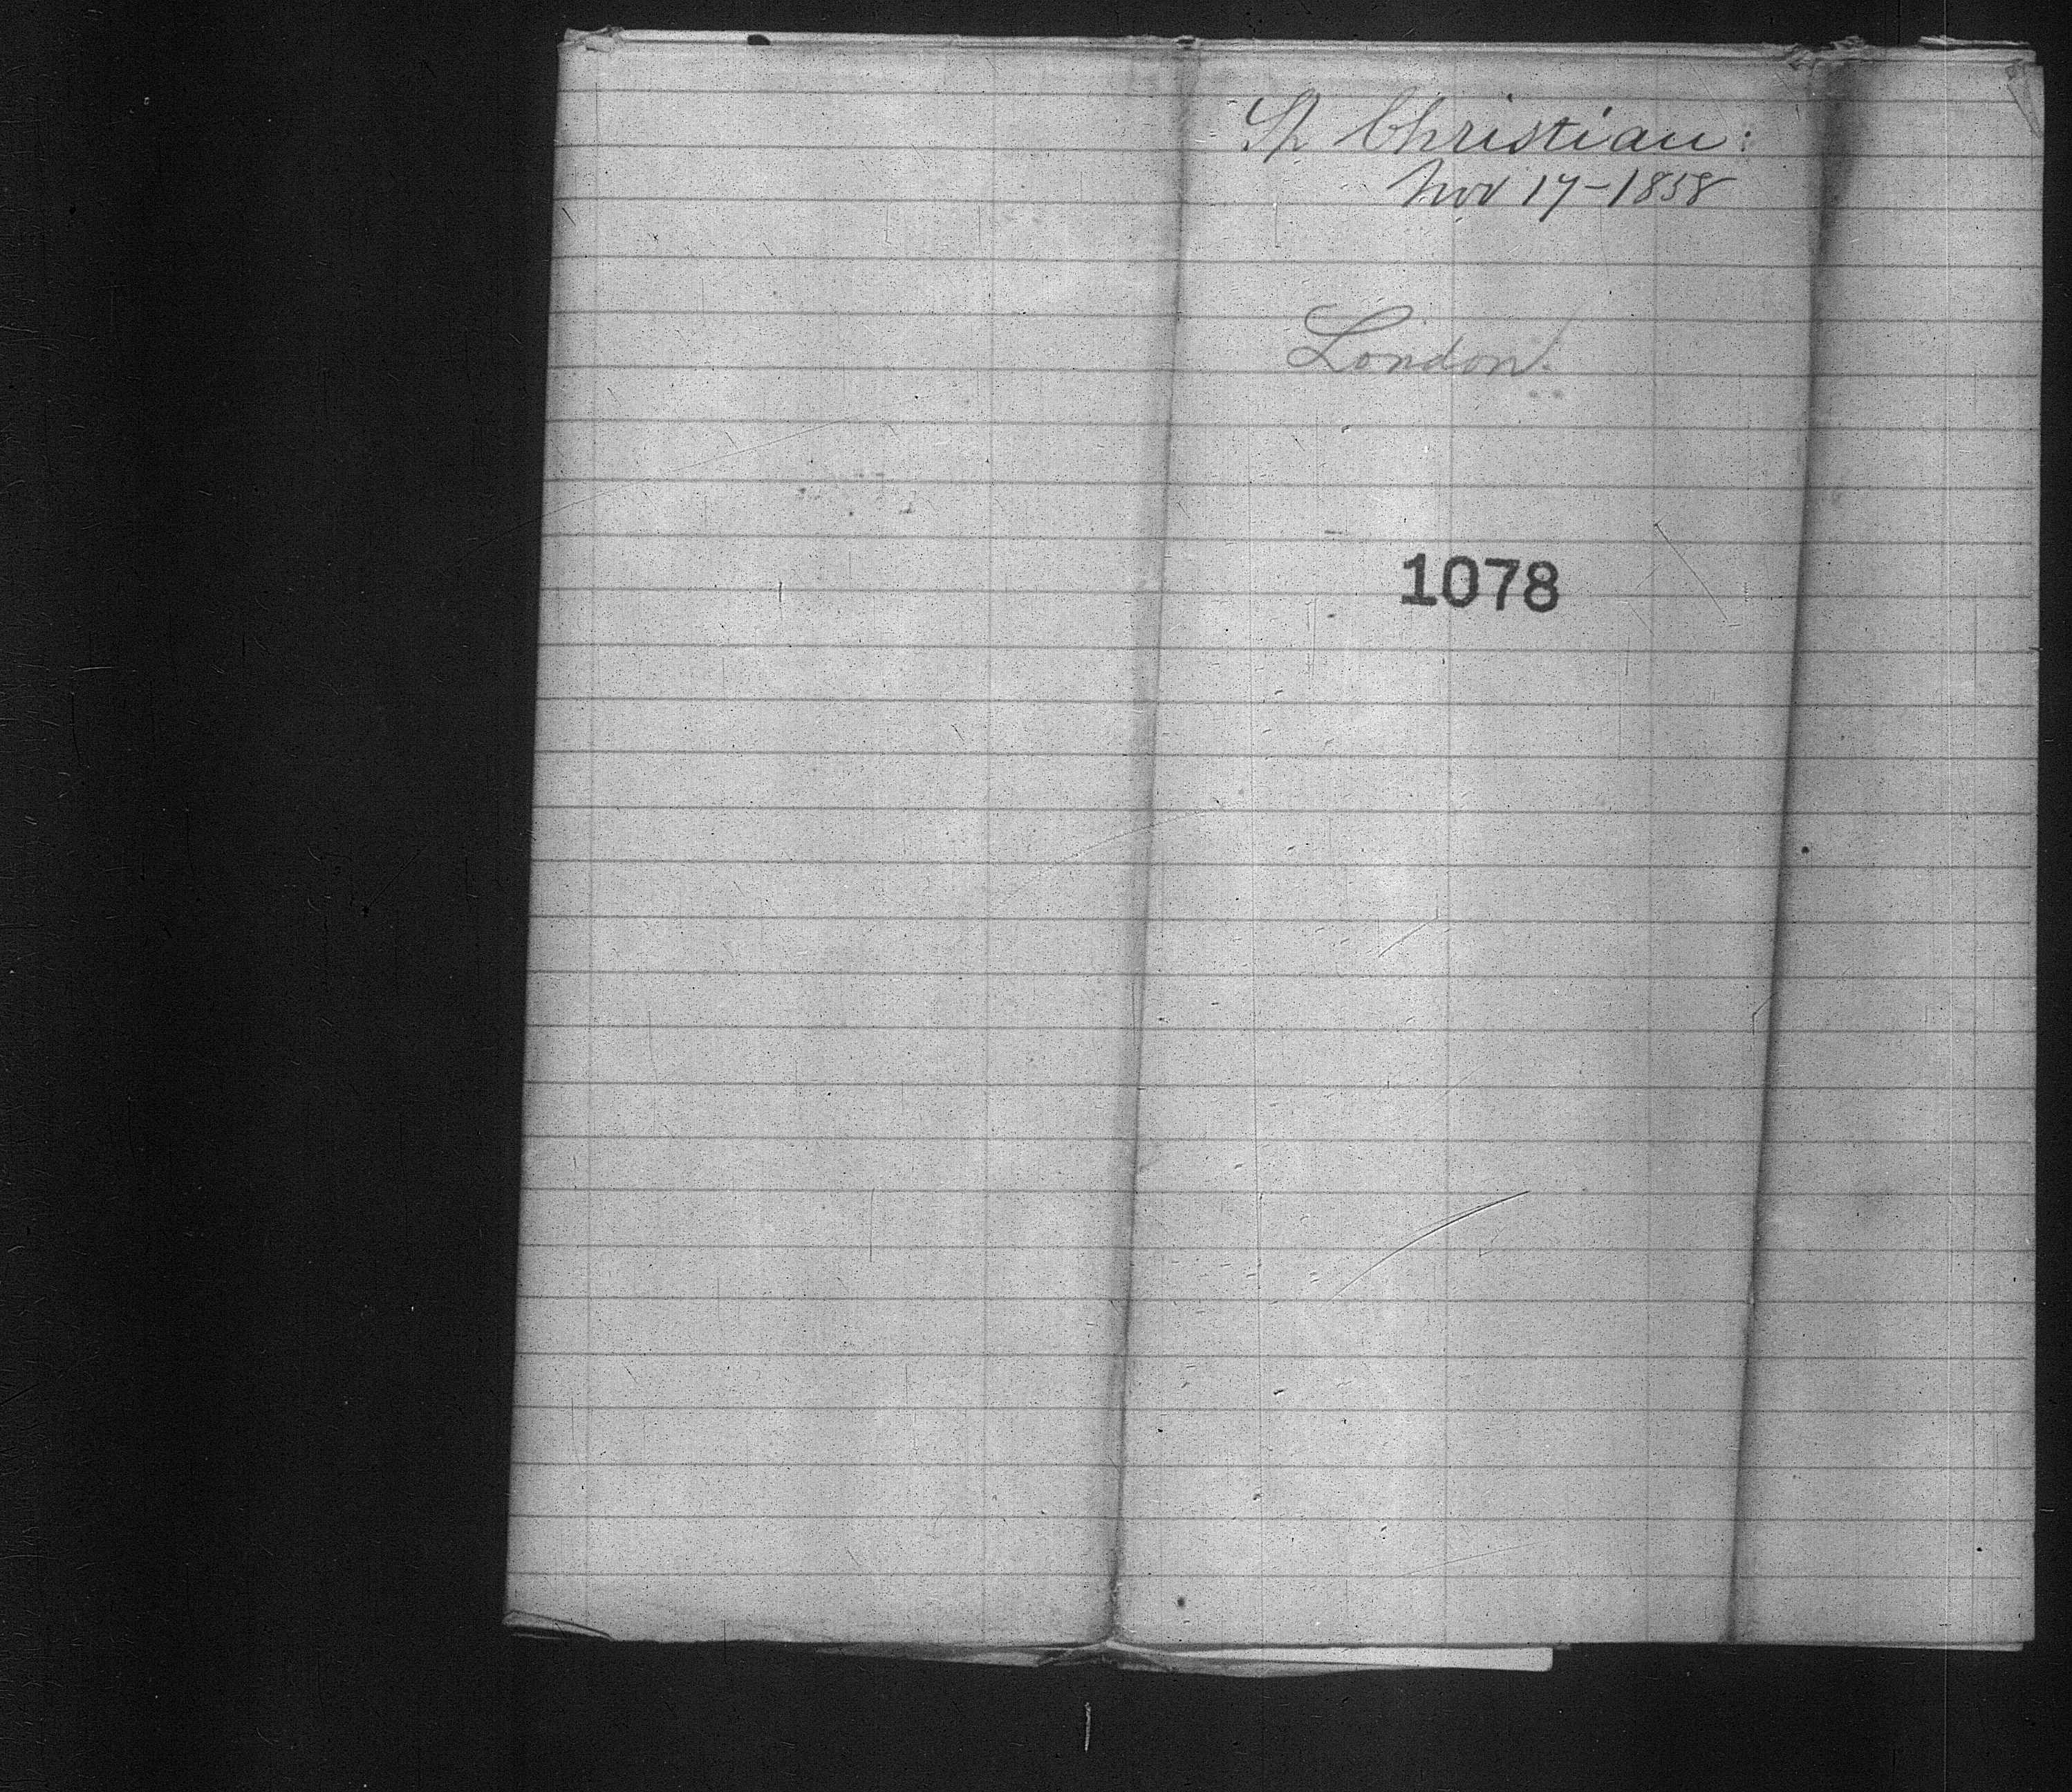 St Christian:
Nov 17-1858
London.
1078